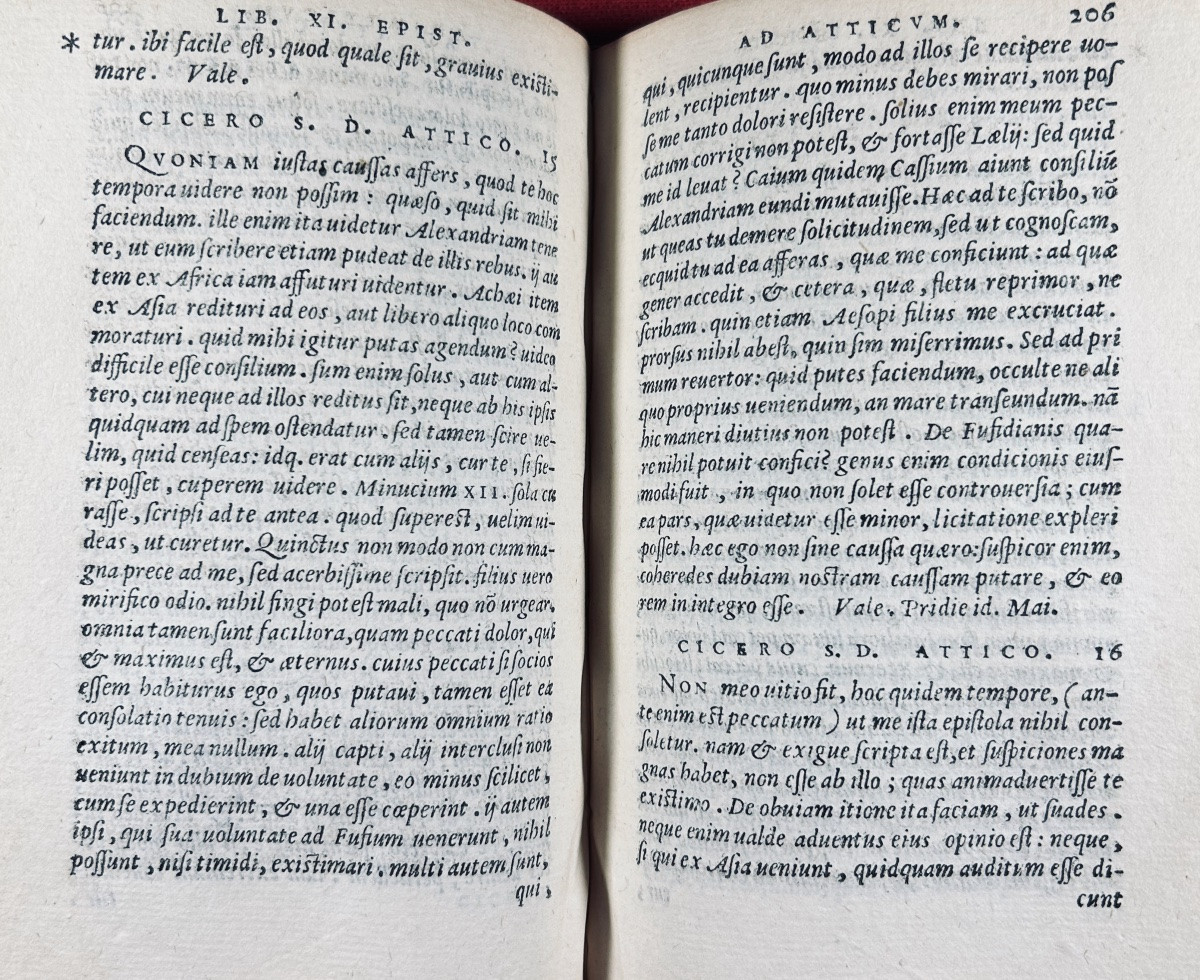 LIB. XI. EPIST.
* tur. ibi facile est, quod quale sit, grauius existi-
mare. Vale.
CICERO S. D. ATTICO. 15
QVONIAM iustas caussas affers, quod te hoc
tempora uidere non possim: quæso, quid sit mihi
faciendum. ille enim ita uidetur Alexandriam tene
re, ut eum scribere etiam pudeat de illis rebus. ij au
tem ex Africa iam affuturi uidentur. Achæi item
ex Asia redituri ad eos, aut libero aliquo loco com
moraturi. quid mihi igitur putas agendum? uideo
difficile esse consilium. sum enim solus, aut cum al-
tero, cui neque ad illos reditus sit, neque ab his ipsis
quidquam ad spem ostendatur. sed tamen scire ue-
lim, quid censeas: idq. erat cum alijs, cur te, si fie-
ri posset, cuperem uidere. Minucium XII. sola cu
rasse, scripsi ad te antea. quod superest, uelim ui-
deas, ut curetur. Quinctus non modo non cum ma-
gna prece ad me, sed acerbissime scripsit. filius uero
mirifico odio. nihil fingi potest mali, quo nō urgear.
omnia tamen sunt faciliora, quam peccati dolor, qui
& maximus est, & æternus. cuius peccati si socios
essem habiturus ego, quos putaui, tamen esset ea
consolatio tenuis: sed habet aliorum omnium ratio
exitum, mea nullum. alij capti, alij interclusi non
ueniunt in dubium de uoluntate, eo minus scilicet,
cum se expedierint, & una esse cœperint. ij autem
ipsi, qui sua uoluntate ad Fufium uenerunt, nihil
possunt, nisi timidi, existimari. multi autem sunt,
qui,
AD ATTICVM. 206
qui, quicunque sunt, modo ad illos se recipere uo-
lent, recipientur. quo minus debes mirari, non pos
se me tanto dolori resistere. solius enim meum pec-
catum corrigi non potest, & fortasse Lælij: sed quid
me id leuat? Caium quidem Cassium aiunt consiliū
Alexandriam eundi mutauisse. Hæc ad te scribo, nō
ut queas tu demere solicitudinem, sed ut cognoscam,
ecquid tu ad ea afferas, quæ me conficiunt: ad quæ
gener accedit, & cetera, quæ, fletu reprimor, ne
scribam. quin etiam Aesopi filius me excruciat.
prorsus nihil abest, quin sim miserrimus. Sed ad pri
mum reuertor: quid putes faciendum, occulte ne ali
quo proprius ueniendum, an mare transeundum. nā
hic maneri diutius non potest. De Fufidianis qua-
re nihil potuit confici? genus enim condicionis eius-
modi fuit, in quo non solet esse controuersia; cum
ea pars, quæ uidetur esse minor, licitatione expleri
posset. hæc ego non sine caussa quæro: suspicor enim,
coheredes dubiam nostram caussam putare, & eo
rem in integro esse. Vale. Pridie id. Mai.
CICERO S. D. ATTICO. 16
NON meo uitio fit, hoc quidem tempore, (an-
te enim est peccatum) ut me ista epistola nihil con-
soletur. nam & exigue scripta est, et suspiciones ma
gnas habet, non esse ab illo; quas animaduertisse te
existimo. De obuiam itione ita faciam, ut suades.
neque enim ualde aduentus eius opinio est: neque,
si qui ex Asia ueniunt, quidquam auditum esse di-
cunt